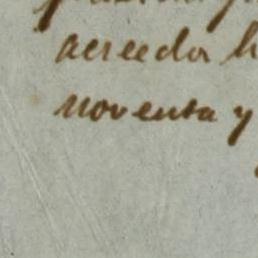 acreedor h
noventa y